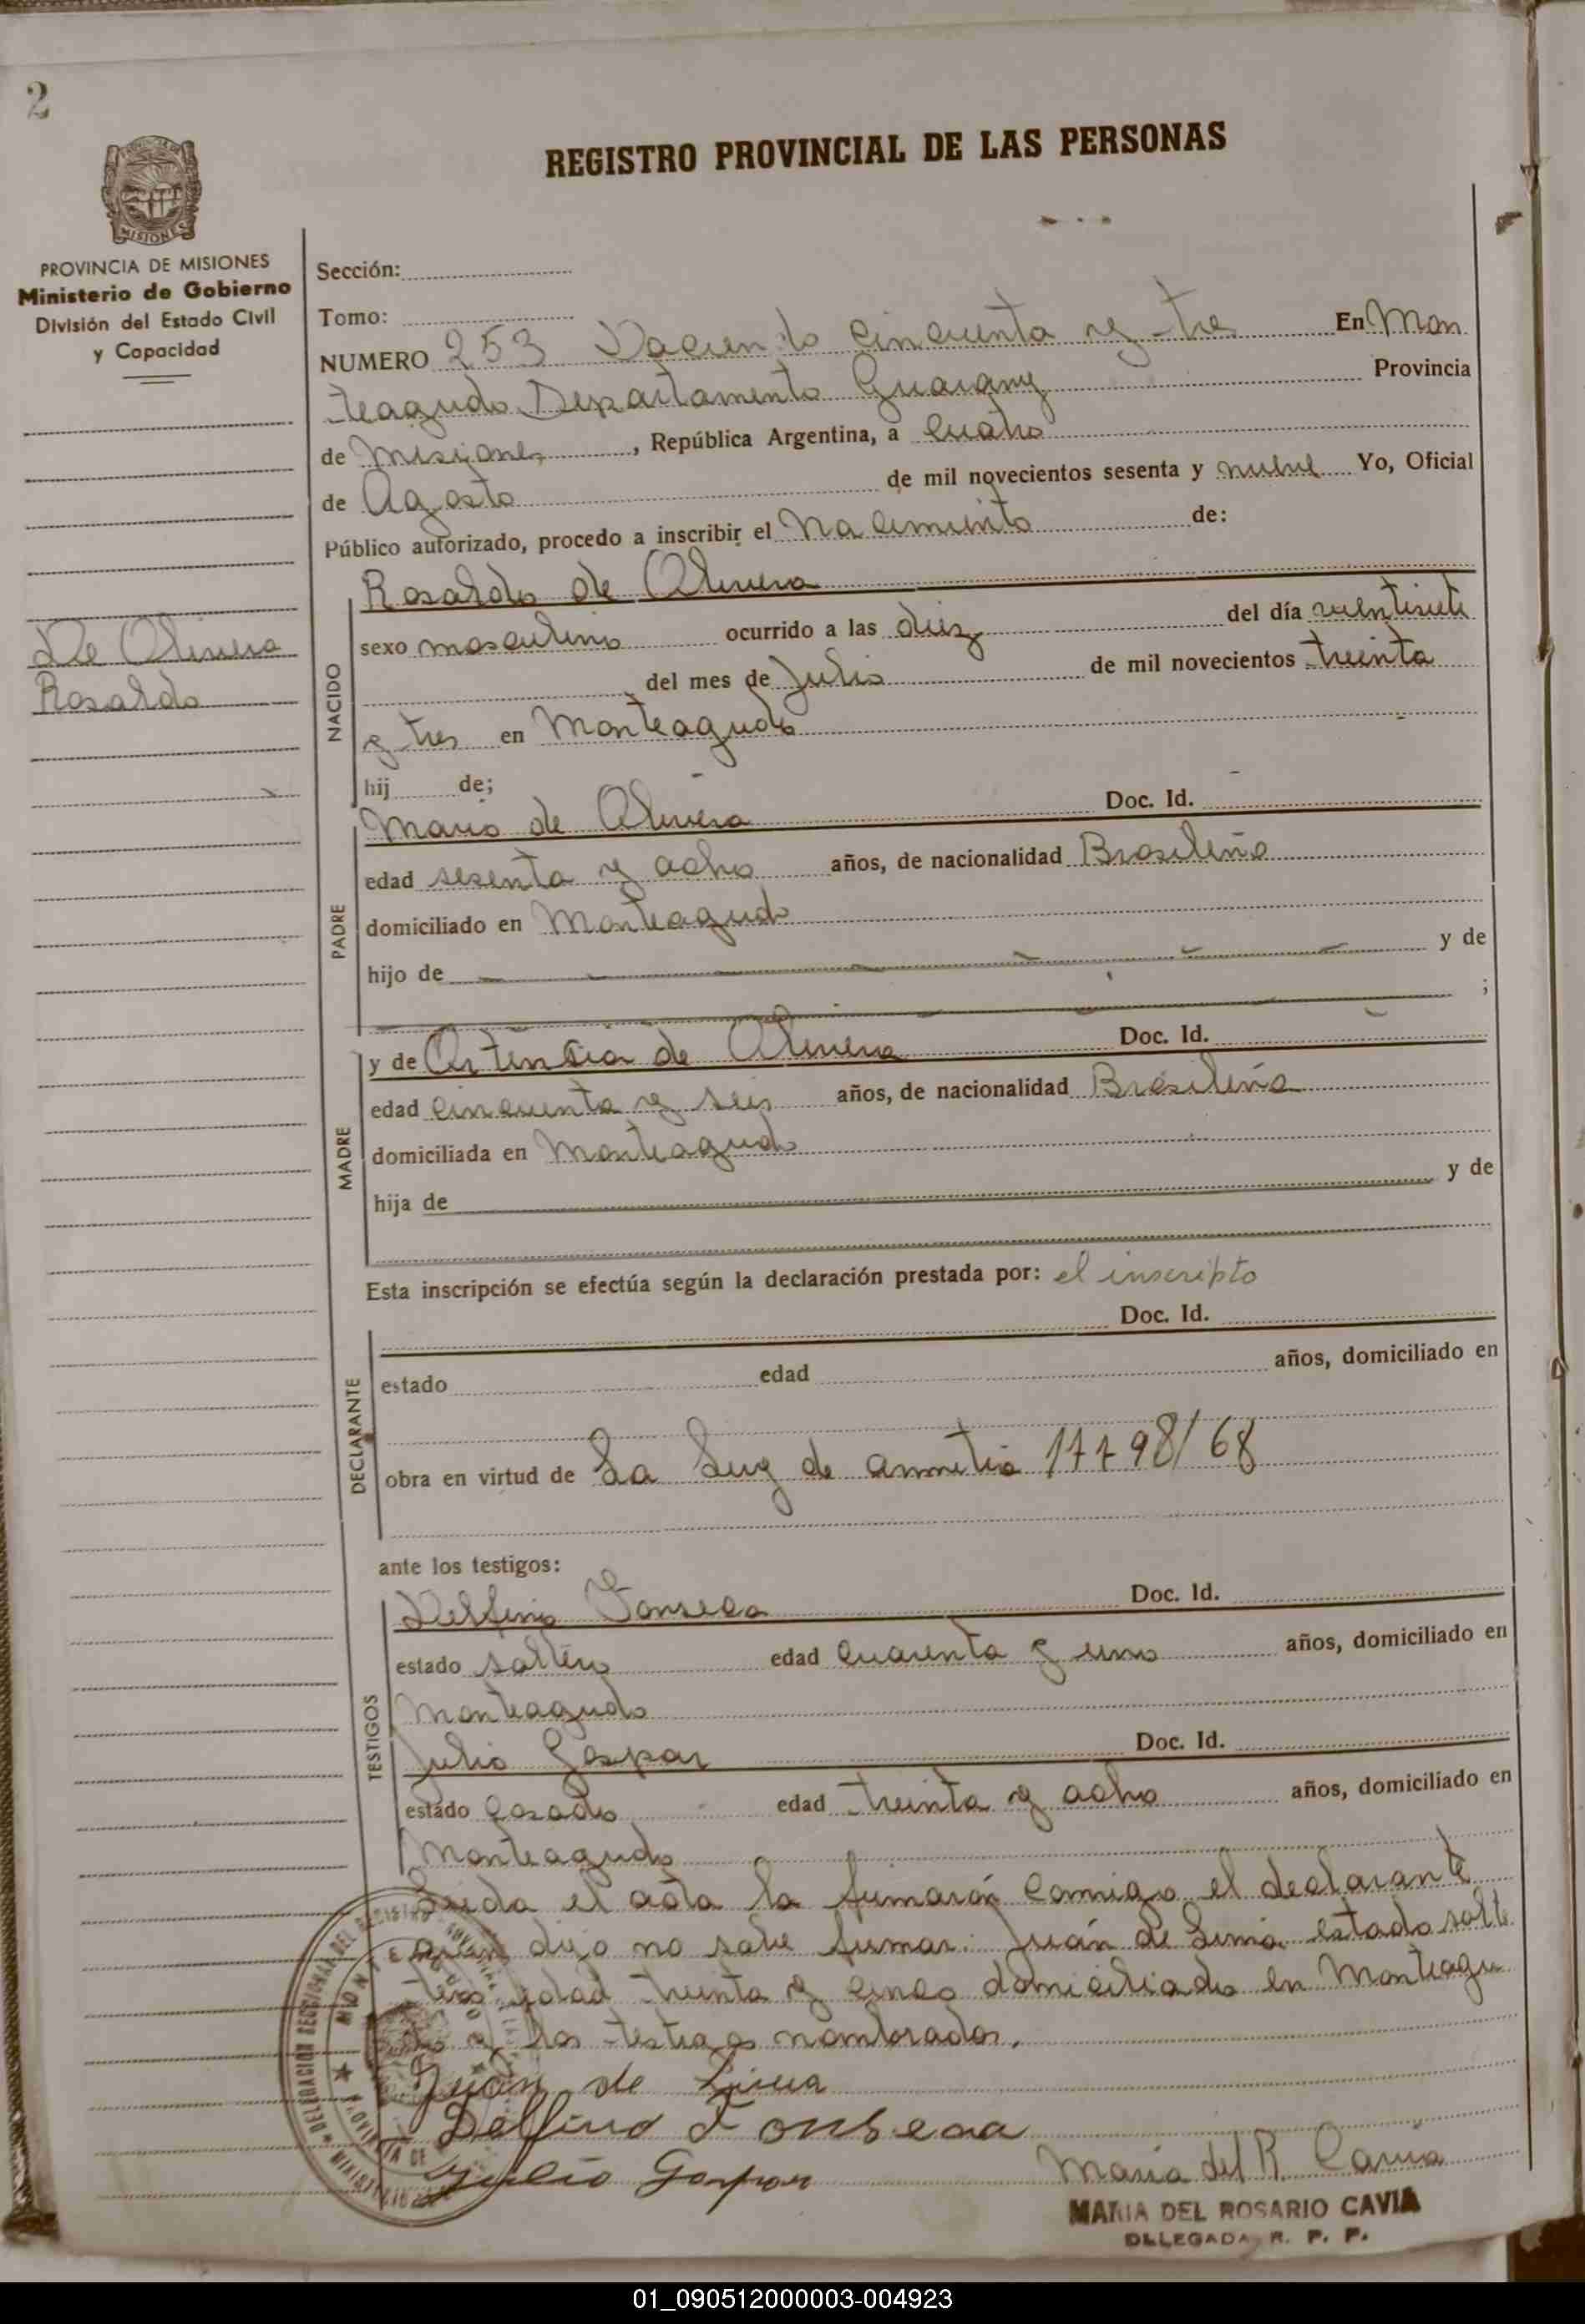 2
REGISTRO PROVINCIAL DE LAS PERSONAS
MISIONES
PROVINCIA DE MISIONES
Ministerio de Gobierno
División del Estado Civil
y Capacidad
De Olivera
Rosaldo
Sección:
Tomo:
NUMERO 253 Dociento cincuenta y tres En Mon
teagudo Departamento Guarany Provincia
de Misiones, República Argentina, a cuatro
de Agosto de mil novecientos sesenta y nueve Yo, Oficial
Público autorizado, procedo a inscribir el Nacimiento de:
NACIDO
Rosaldo de Olivera
sexo masculino ocurrido a las diez del día veintisiete
del mes de Julio de mil novecientos treinta
y tres en Monteagudo
hij de;
PADRE
Mario de Olivera Doc. Id.
edad sesenta y ocho años, de nacionalidad Brasileño
domiciliado en Monteagudo
hijo de y de
;
MADRE
y de Ortencia de Olivera Doc. Id.
edad cincuenta y seis años, de nacionalidad Brasileña
domiciliada en Monteagudo
hija de y de
Esta inscripción se efectúa según la declaración prestada por: el inscripto
DECLARANTE
Doc. Id.
estado edad años, domiciliado en
obra en virtud de La Ley de amnitia 17798/68
ante los testigos:
TESTIGOS
Delfino Fonseca Doc. Id.
estado soltero edad cuarenta y uno años, domiciliado en
Monteagudo
Julio Gaspar Doc. Id.
estado Casado edad treinta y ocho años, domiciliado en
Monteagudo
Leida el acta la firmarón comigo el declarante
quien dijo no sabe firmar: Juán de Lima estado solte
tero edad treinta y cinco domiciliado en Monteagu
do y los testigos nombrados.
Juán de Lima
Delfino Fonseca
Julio Gaspar
Maria del R. Cavia
MARIA DEL ROSARIO CAVIA
DELEGADA R. P. P.
01_090512000003-004923